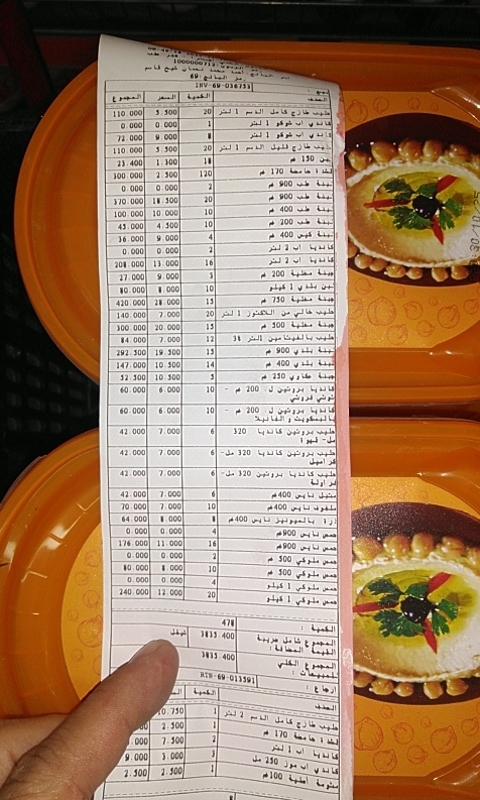 1000000713
رمز البائع:69
INV-69-036733
الصنف الكمية السعر المجموع
حليب طازج كامل الدسم 1 لتر 20 5.500 110.000
كاندي اب شوكو 1 لتر 1 0.000 0.000
كاندي اب شوكو 1 لتر 8 9.000 72.000
حليب طازج قليل الدسم 1 لتر 20 5.500 110.000
لبن 150 م 18 1.300 23.400
قشدة حامضة 170 م 120 2.500 300.000
لبنة طب 900 م 2 0.000 0.000
لبنة طب 900 م 20 18.500 370.000
لبنة طب 400 م 10 10.000 100.000
لبنة طب 200 م 10 4.500 45.000
لبنة كيس 400 م 4 9.000 36.000
كانديا اب 2 لتر 2 0.000 0.000
كانديا اب 2 لتر 16 13.000 208.000
جبنة مطبة 200 م 3 9.000 27.000
لبن بلدي 1 كيلو 10 8.000 80.000
جبنة مطبة 750 م 15 28.000 420.000
حليب خالي من اللاكتوز 1 لتر 20 7.000 140.000
جبنة مطبة 500 م 15 20.000 300.000
حليب بالفيتامين 1 لتر 3% 12 7.000 84.000
لبنة بلدي 900 م 15 19.500 292.500
لبنة بلدي 400 م 14 10.500 147.000
جبنة عكاوي 250 م 5 10.500 52.500
كانديا بروتين ل. 200 م - 10 6.000 60.000
توتي فروتي
كانديا بروتين ل. 200 م - 10 6.000 60.000
بالبسكويت والفانيلا
حليب بروتين كانديا 320 6 7.000 42.000
مل- قهوة
حليب بروتين كانديا 320 مل- 6 7.000 42.000
كراميل
حليب كانديا بروتين 320 مل- 6 7.000 42.000
فراولة
متبل نايس 400م 6 7.000 42.000
ملفوف نايس 400م 10 7.000 70.000
ذرة بالميونيز نايس 400م 8 8.000 64.000
حمص نايس 900م 4 0.000 0.000
حمص نايس 900م 16 11.000 176.000
حمص ملوكي 500 م 2 0.000 0.000
حمص ملوكي 500 م 10 8.000 80.000
حمص ملوكي 1 كيلو 4 0.000 0.000
حمص ملوكي 1 كيلو 20 12.000 240.000
الكمية : 478
المجموع شامل ضريبة 3835.400 شيكل
القيمة المضافة :
المجموع الكلي 3835.400
للمبيعات :
ارجاع : RTN-69-013591
الصنف الكمية
حليب طازج كامل الدسم 2 لتر 1 10.750
قشدة حامضة 170 م 1 2.500
كانديا اب 1 لتر 2 7.500
كاندي اب موز 250 مل 3 3.000
مثومة أطية 100م 1 2.500 2.500